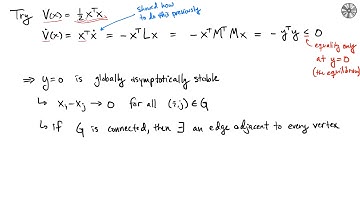 Try V(x) = ½ xᵀx.
showed how to do this previously
V̇(x) = xᵀẋ = -xᵀLx = -xᵀMᵀMx = -yᵀy ≤ 0
equality only at y=0 (the equilibrium)
⇒ y=0 is globally asymptotically stable
↳ xᵢ-xⱼ → 0 for all (i,j) ∈ G
↳ if G is connected, then ∃ an edge adjacent to every vertex